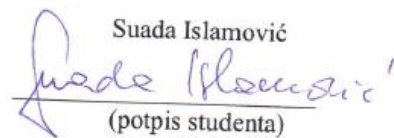 Suada Islamović
Suada Islamović
(potpis studenta)